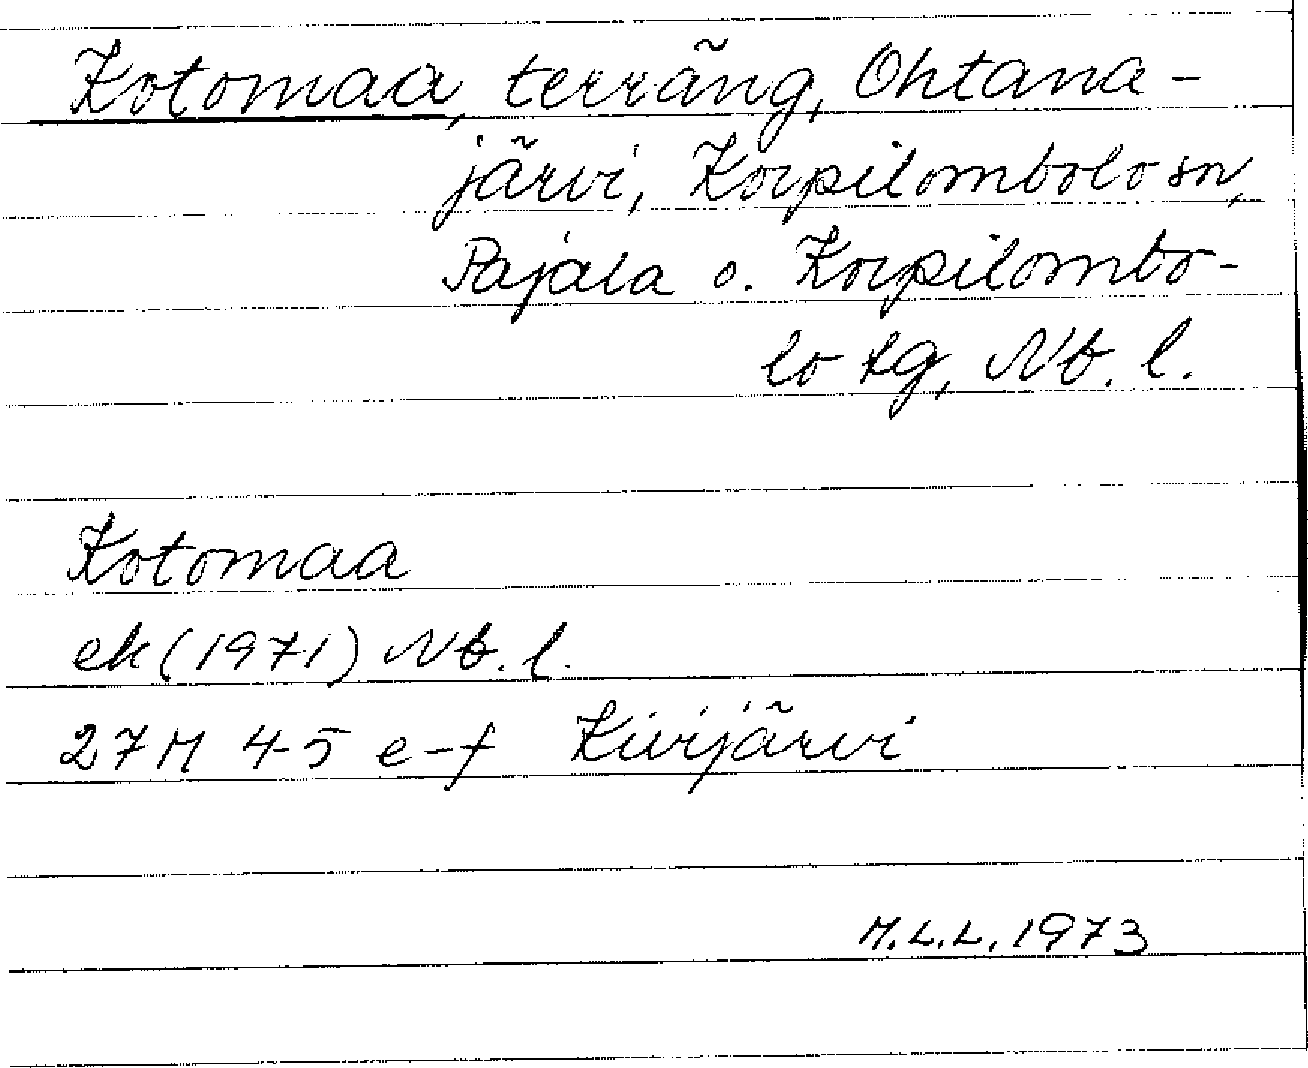 Kotomaa, terräng, Ohtana-
järvi, Korpilombolo sn,
Pajala o. Korpilombo-
lo tg, Nb. l.
Kotomaa
ek (1971) Nb. l.
27M 4-5 e-f Kivijärvi
M.L.L. 1973